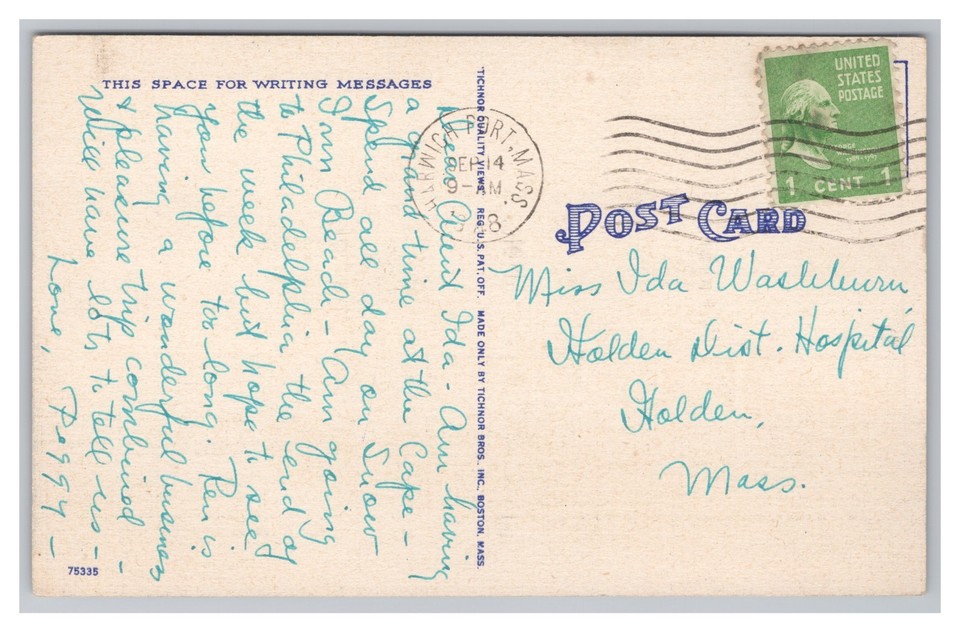 THIS SPACE FOR WRITING MESSAGES
Dear Aunt Ida - Am having
a grand time at the Cape -
Spend all day on Snow
Inn Beach - Am going
to Philadelphia the end of
the week but hope to see
you before too long. is
having a wonderful business
& pleasure trip combined -
Will have lots to tell us -
Love, Peggy -
75335
"TICHNOR QUALITY VIEWS," REG. U. S. PAT. OFF. MADE ONLY BY TICHNOR BROS., INC., BOSTON, MASS.
HARWICH PORT, MASS.
SEP 14
9-AM
UNITED
STATES
POSTAGE
1 CENT 1
POST CARD
Miss Ida Washburn
Holden Dist. Hospital
Holden,
Mass.